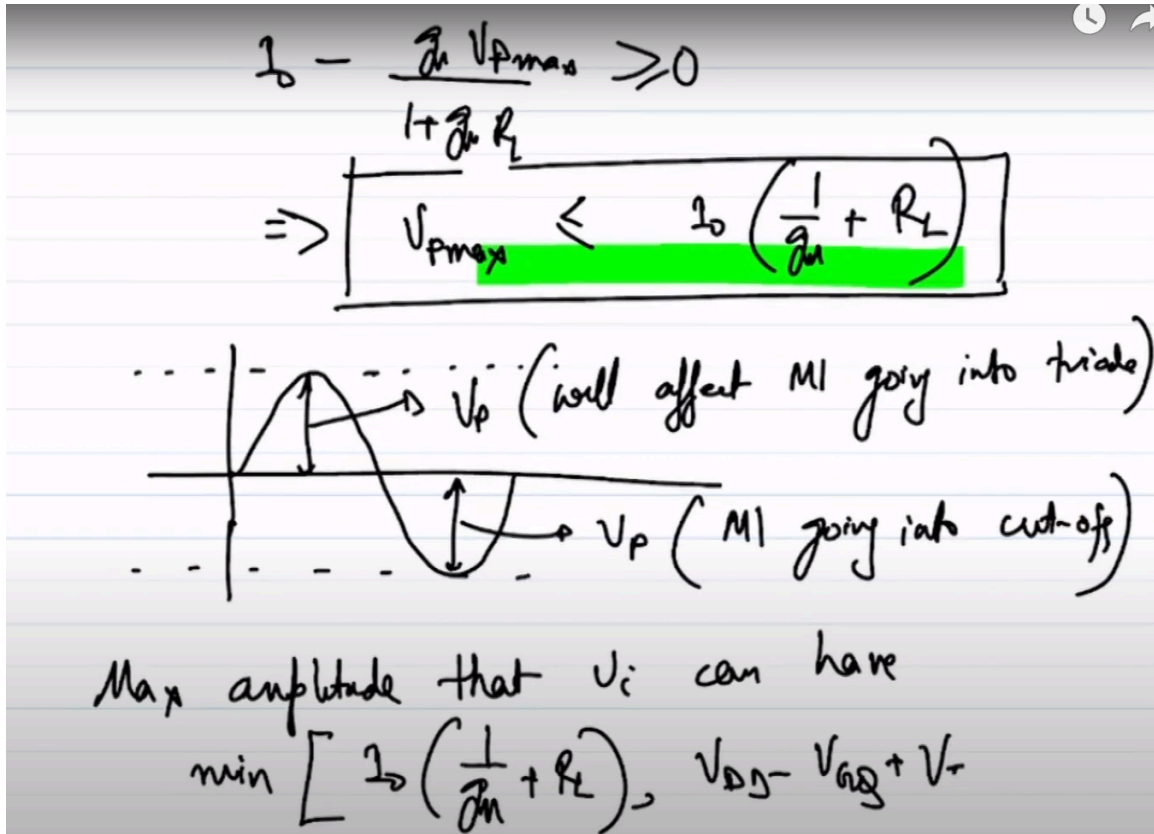 I₀ - gₘ Vₚₘₐₓ / (1 + gₘ R_L) ⩾ 0
=> Vₚₘₐₓ < I₀ (1/gₘ + R_L)
Vₚ (will affect M1 going into triode)
Vₚ (M1 going into cut-off)
Max amplitude that vᵢ can have
min [ I₀ (1/gₘ + R_L), V_DD - V_GQ + V_T